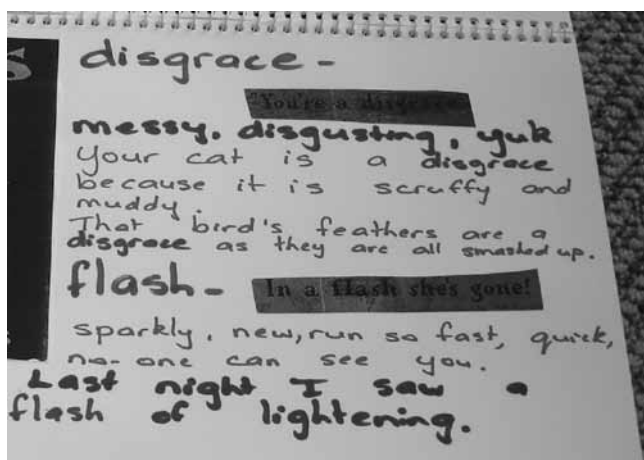 disgrace -
"You're a disgrace
messy, disgusting, yuk
Your cat is a disgrace
because it is scruffy and
muddy.
That bird's feathers are a
disgrace as they are all smashed up.
flash - In a flash she's gone!
sparkly, new, run so fast, quick,
no-one can see you.
Last night I saw a
flash of lightening.